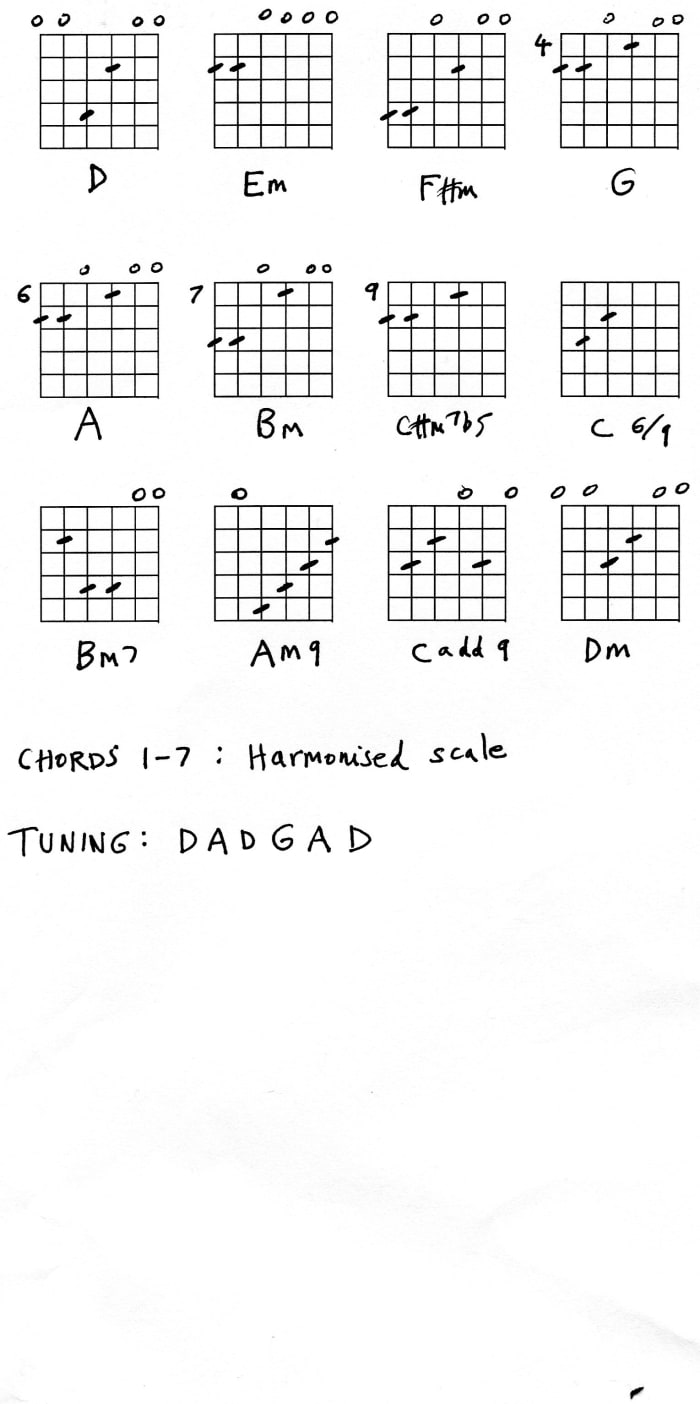 o o o o
o o o o
o o o
4 o o o
D Em F#m G
6 o o o
7 o o o
9 o o o
A Bm C#m7b5 C 6/9
o o
o
o o
o o o o
Bm7 Am9 Cadd9 Dm
CHORDS 1-7 : Harmonised scale
TUNING: D A D G A D